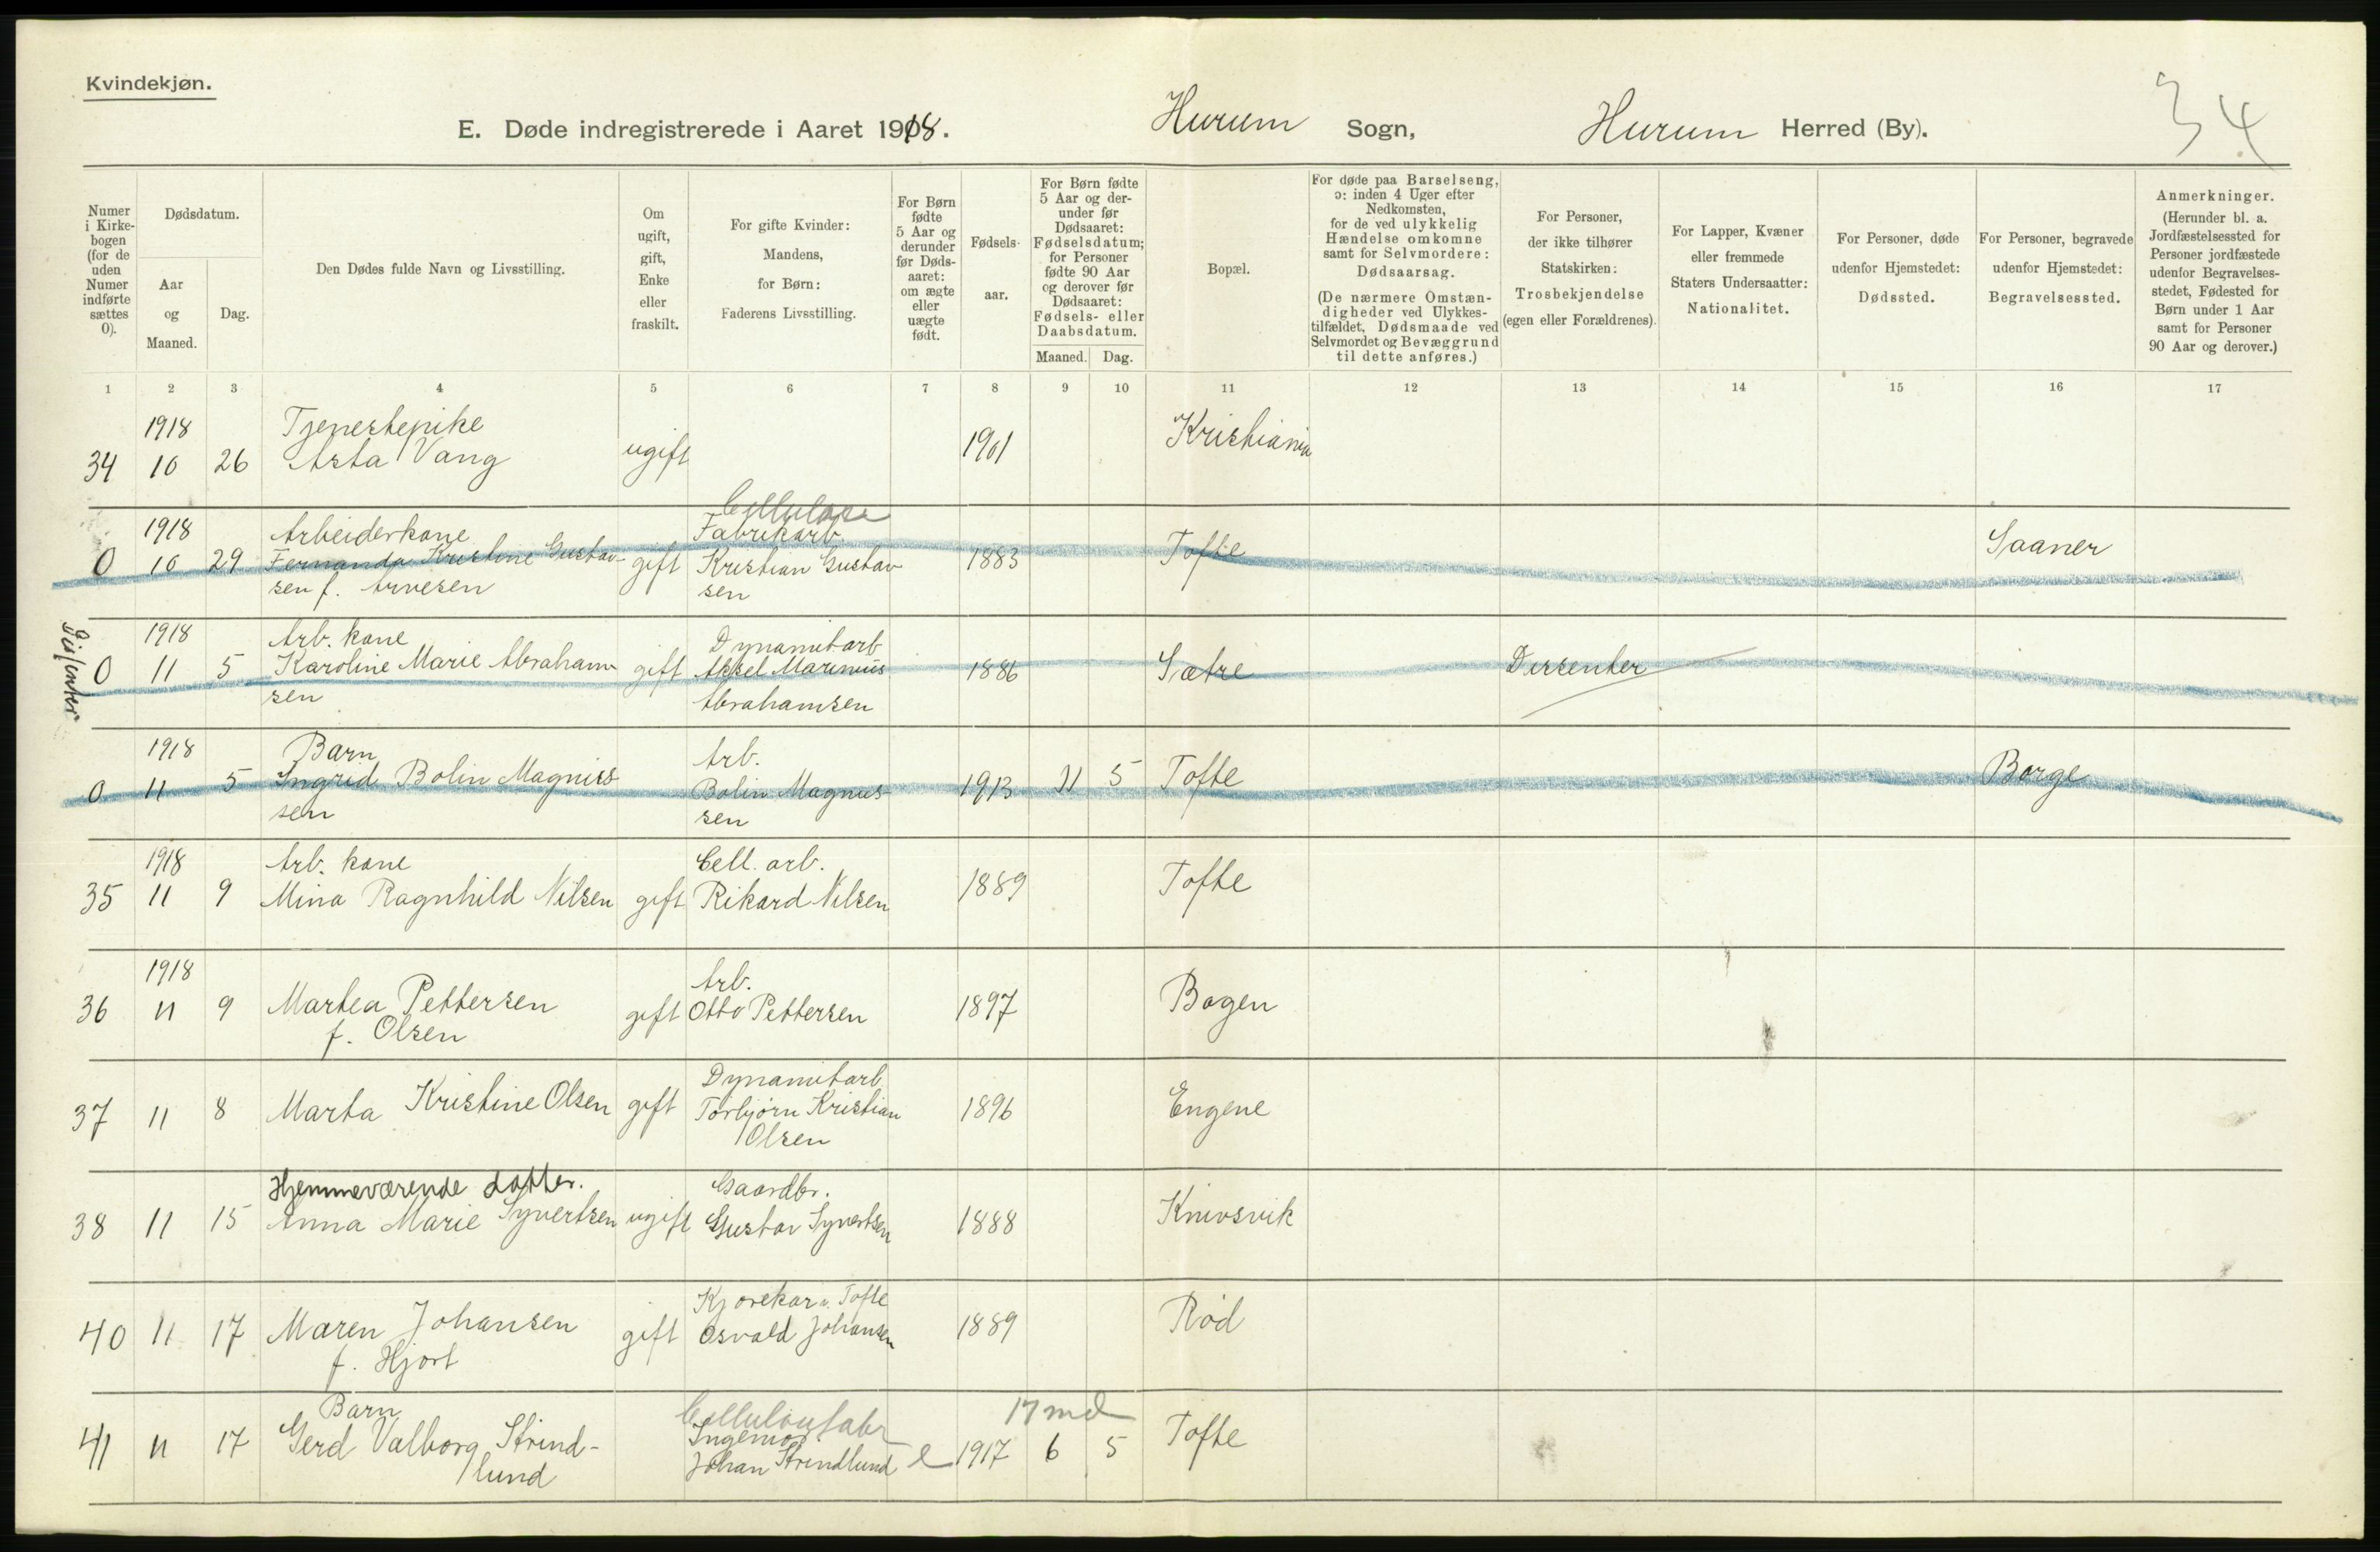 Kvindekjøn.
E. Døde indregistrerede i Aaret 1918. Hurum Sogn, Hurum Herred (By). 34
Numer i Kirke-bogen (for de uden Numer indførte sættes 0).
Dødsdatum.
Aar og Maaned.
Dag.
Den Dødes fulde Navn og Livsstilling.
Om ugift, gift, Enke eller fraskilt.
For gifte Kvinder: Mandens, for Børn: Faderens Livsstilling.
For Børn fødte 5 Aar og derunder før Døds-aaret: om ægte eller uægte født.
Fødsels-aar.
For Børn fødte 5 Aar og der-under før Dødsaaret: Fødselsdatum; for Personer fødte 90 Aar og derover før Dødsaaret: Fødsels- eller Daabsdatum.
Maaned. Dag.
Bopæl.
For døde paa Barselseng, ɔ: inden 4 Uger efter Nedkomsten, for de ved ulykkelig Hændelse omkomne samt for Selvmordere: Dødsaarsag.
(De nærmere Omstæn-digheder ved Ulykkes-tilfældet, Dødsmaade ved Selvmordet og Bevæggrund til dette anføres.)
For Personer, der ikke tilhører Statskirken: Trosbekjendelse (egen eller Forældrenes).
For Lapper, Kvæner eller fremmede Staters Undersaatter: Nationalitet.
For Personer, døde udenfor Hjemstedet: Dødssted.
For Personer, begravede udenfor Hjemstedet: Begravelsessted.
Anmerkninger.
(Herunder bl. a. Jordfæstelsessted for Personer jordfæstede udenfor Begravelses-stedet, Fødested for Børn under 1 Aar samt for Personer 90 Aar og derover.)
1 2 3 4 5 6 7 8 9 10 11 12 13 14 15 16 17
1918 Tjenestepike
34 10 26 Asta Vang ugift 1901 Kristiania
Cellulose
1918 Arbeiderkone Fabrikarb.
0 10 29 Fernanda Kristine Gustav- gift Kristian Gustav 1883 Tofte Saaner
sen f. Arvesen sen
1918 Arb. kone Dynamitarb
0 11 5 Karoline Marie Abraham gift Aksel Marinius 1886 Sætre Dissenter
sen Abrahamsen
1918 Barn Arb.
0 11 5 Ingrid Bolin Magnus Bolin Magnus- 1913 11 5 Tofte Borge
sen sen
1918 Arb. kone Cell. arb.
35 11 9 Mina Ragnhild Nilsen gift Rikard Nilsen 1889 Tofte
1918 Arb.
36 11 9 Martea Pettersen gift Otto Pettersen 1897 Bogen
f. Olsen
Dynamitarb
37 11 8 Marta Kristine Olsen gift Torbjørn Kristian 1896 Engene
Olsen
Hjemmeværende datter. Gaardbr.
38 11 15 Anna Marie Syvertsen ugift Gustav Syvertsen 1888 Knivsvik
Kjørekar v. Tofte
40 11 17 Maren Johansen gift Osvald Johansen 1889 Rød
f. Hjort
Barn Cellulosefabr 17 md
Ingeniør
41 11 17 Gerd Valborg Strind- Johan Strindlund e 1917 6 5 Tofte
lund